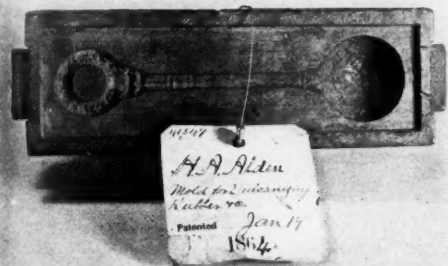 H. A. Alden
Mold for
Rubber
Patented Jan 19
1864